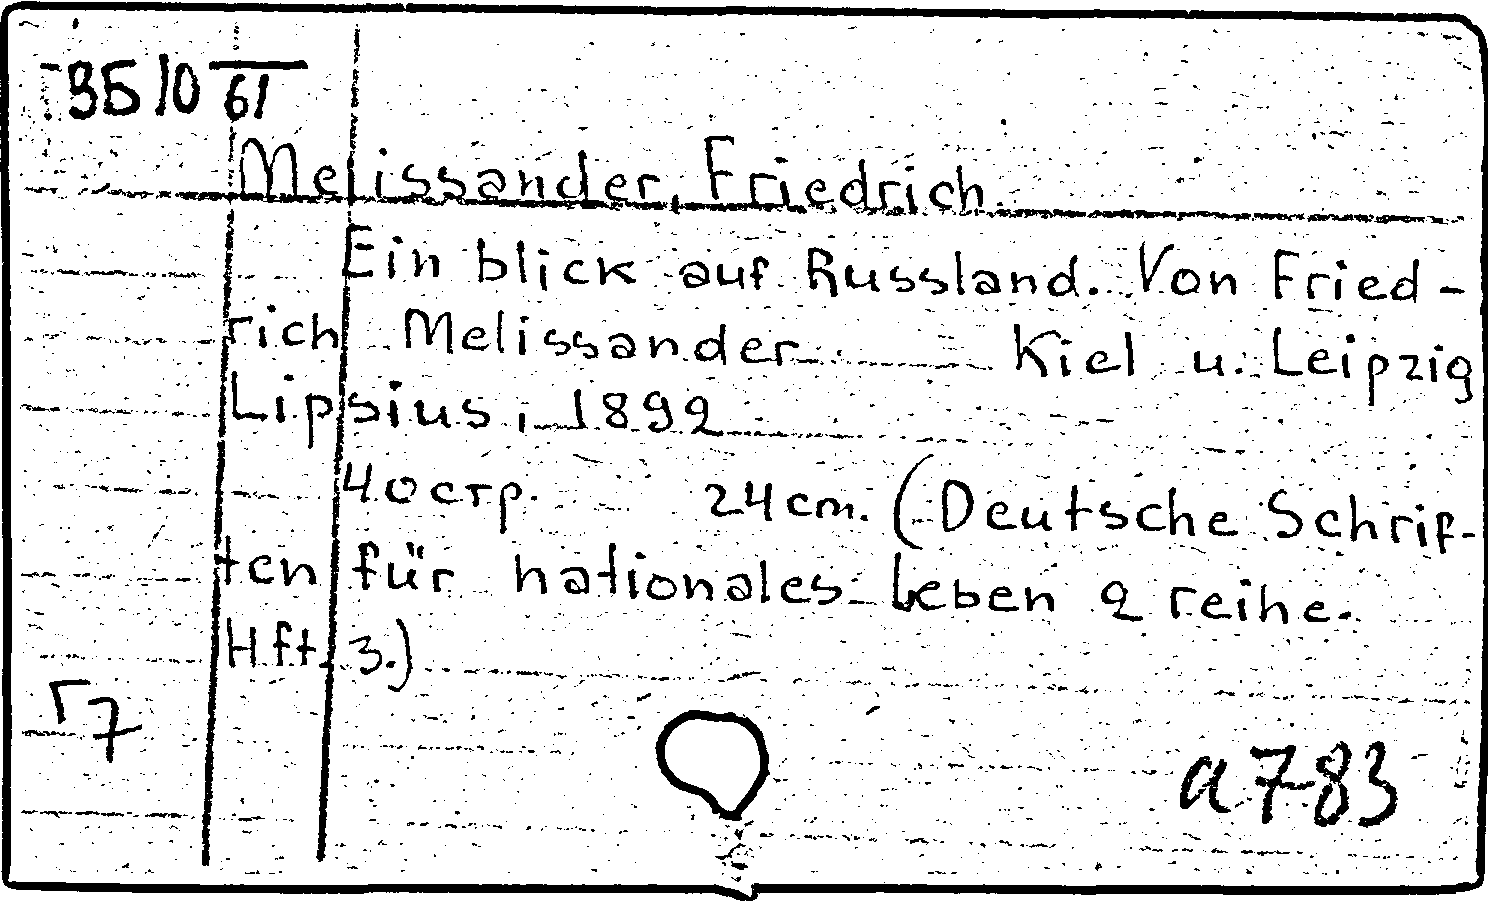 ЗБ 10 61
Melissander, Friedrich.
Ein blick auf Russland. Von Fried-
rich Melissander Kiel u. Leipzig
Lipsius, 1892
40 стр. 24 cm. (Deutsche Schrif-
ten für nationales Leben 2 reihe.
Hft. 3.)
Г7
a783